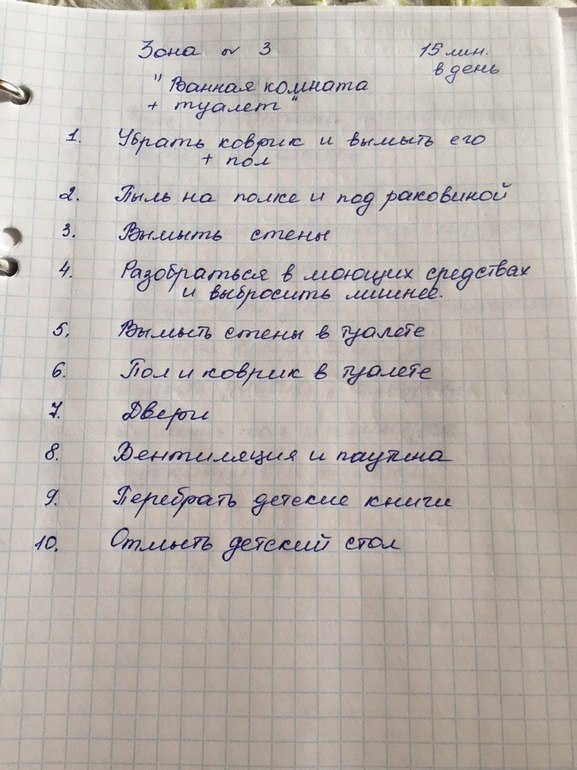 Зона № 3 15 мин.
в день
"Ванная комната
+ туалет"
1. Убрать коврик и вымыть его
+ пол
2. Пыль на полке и под раковиной
3. Вымыть стены
4. Разобраться в моющих средствах
и выбросить лишнее.
5. Вымыть стены в туалете
6. Пол и коврик в туалете
7. Двери
8. Вентиляция и паутина
9. Перебрать детские книги
10. Отмыть детский стол